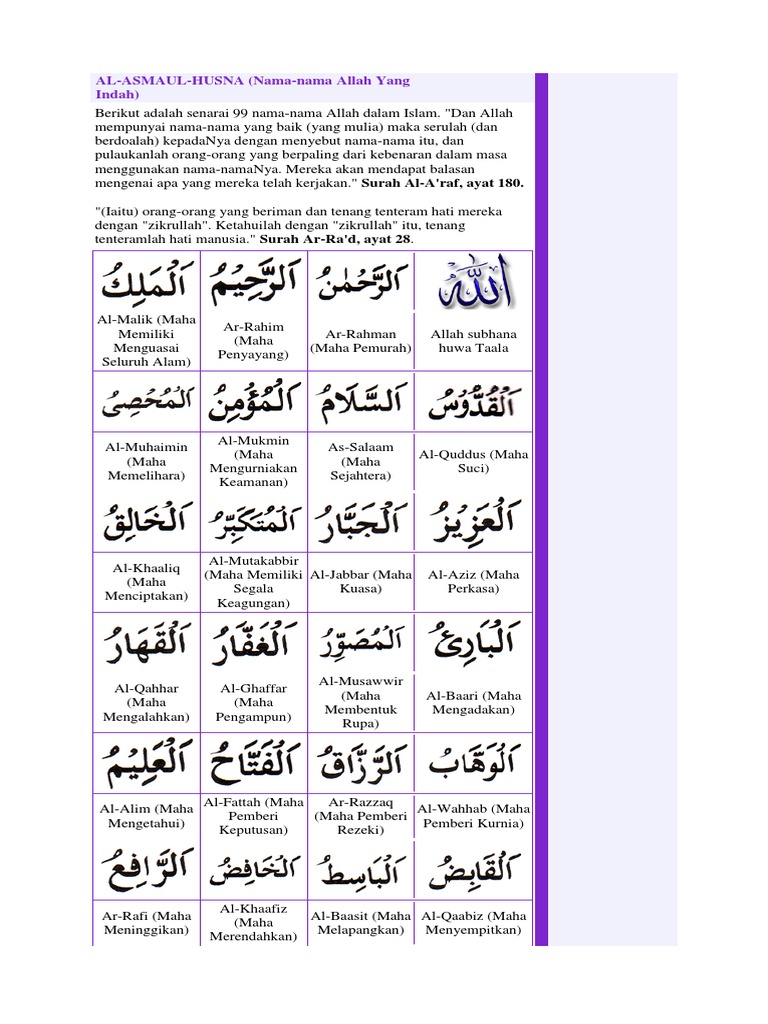 AL-ASMAUL-HUSNA (Nama-nama Allah Yang
Indah)
Berikut adalah senarai 99 nama-nama Allah dalam Islam. "Dan Allah
mempunyai nama-nama yang baik (yang mulia) maka serulah (dan
berdoalah) kepadaNya dengan menyebut nama-nama itu, dan
pulaukanlah orang-orang yang berpaling dari kebenaran dalam masa
menggunakan nama-namaNya. Mereka akan mendapat balasan
mengenai apa yang mereka telah kerjakan." Surah Al-A'raf, ayat 180.
"(Iaitu) orang-orang yang beriman dan tenang tenteram hati mereka
dengan "zikrullah". Ketahuilah dengan "zikrullah" itu, tenang
tenteramlah hati manusia." Surah Ar-Ra'd, ayat 28.
اَلْمَلِكُ
Al-Malik (Maha
Memiliki
Menguasai
Seluruh Alam)
اَلرَّحِيْمُ
Ar-Rahim
(Maha
Penyayang)
اَلرَّحْمٰنُ
Ar-Rahman
(Maha Pemurah)
اللّٰهُ
Allah subhana
huwa Taala
اَلْمُحْصِىُ
Al-Muhaimin
(Maha
Memelihara)
اَلْمُؤْمِنُ
Al-Mukmin
(Maha
Mengurniakan
Keamanan)
اَلسَّلَامُ
As-Salaam
(Maha
Sejahtera)
اَلْقُدُّوْسُ
Al-Quddus (Maha
Suci)
اَلْخَالِقُ
Al-Khaaliq
(Maha
Menciptakan)
اَلْمُتَكَبِّرُ
Al-Mutakabbir
(Maha Memiliki
Segala
Keagungan)
اَلْجَبَّارُ
Al-Jabbar (Maha
Kuasa)
اَلْعَزِيْزُ
Al-Aziz (Maha
Perkasa)
اَلْقَهَارُ
Al-Qahhar
(Maha
Mengalahkan)
اَلْغَفَّارُ
Al-Ghaffar
(Maha
Pengampun)
اَلْمُصَوِّرُ
Al-Musawwir
(Maha
Membentuk
Rupa)
اَلْبَارِئُ
Al-Baari (Maha
Mengadakan)
اَلْعَلِيْمُ
Al-Alim (Maha
Mengetahui)
اَلْفَتَّاحُ
Al-Fattah (Maha
Pemberi
Keputusan)
اَلرَّزَّاقُ
Ar-Razzaq
(Maha Pemberi
Rezeki)
اَلْوَهَّابُ
Al-Wahhab (Maha
Pemberi Kurnia)
اَلرَّافِعُ
Ar-Rafi (Maha
Meninggikan)
اَلْخَافِضُ
Al-Khaafiz
(Maha
Merendahkan)
اَلْبَاسِطُ
Al-Baasit (Maha
Melapangkan)
اَلْقَابِضُ
Al-Qaabiz (Maha
Menyempitkan)